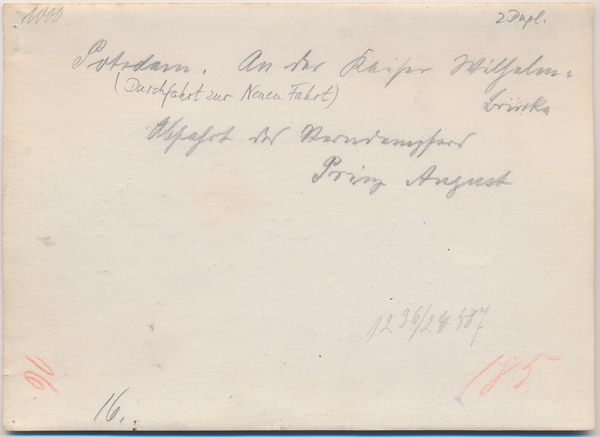 1000
2 Dupl.
Potsdam. An der Kaiser Wilhelm=
(Durchfahrt zur Neuen Fahrt)
brücke
Abfahrt des Sterndampfers
Prinz August
1296/24 587
16
185
16.